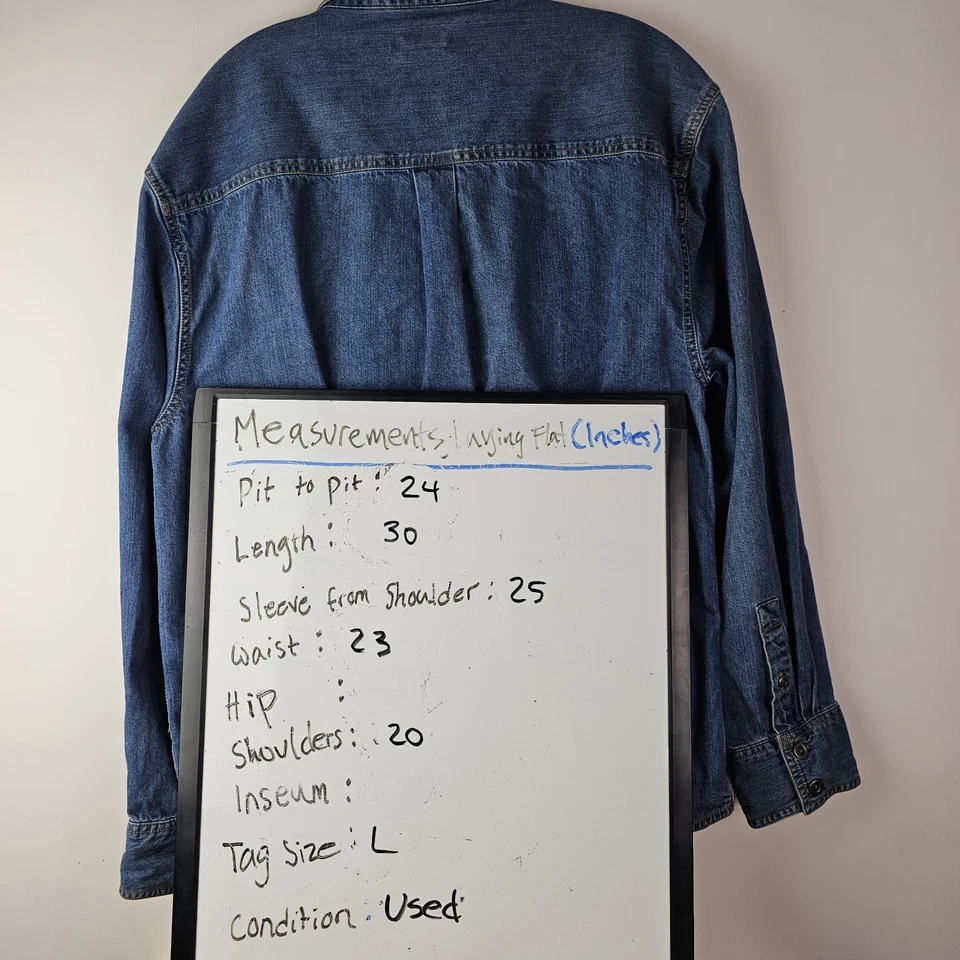 Measurements: Laying Flat (Inches)
Pit to Pit: 24
Length: 30
Sleeve from Shoulder: 25
Waist: 23
Hip :
Shoulders: 20
Inseum :
Tag Size: L
Condition: Used